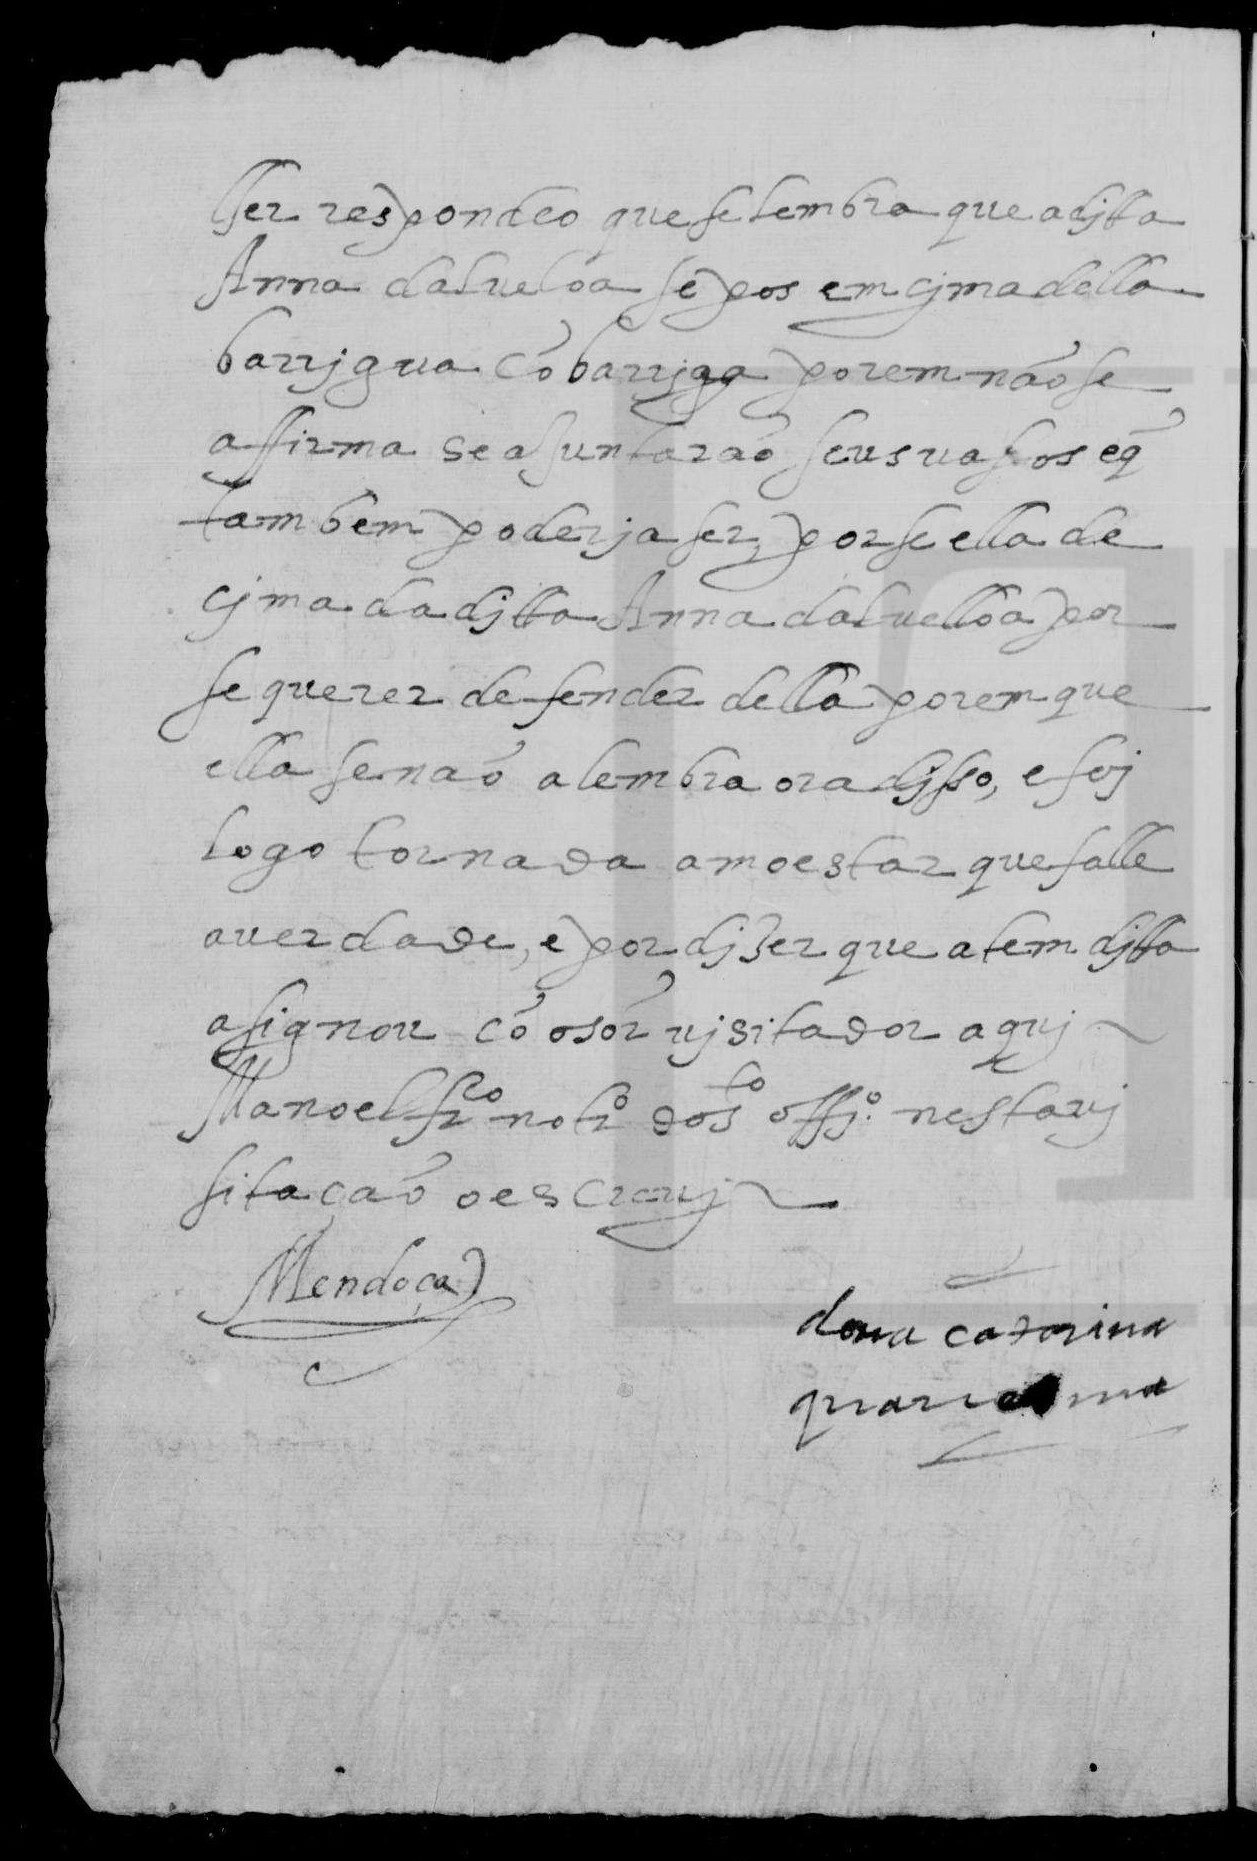 lher respondeo que se lembra que a djtta
Anna dalueloa se pos em cjma della
barrjgua cõ barrjga porem não se
affirma se ajuntarão seus uasos e q̃
tambem poderja ser, por se ella de
cjma da djtta Anna daluelloa por
se querer defender della porem que
ella se não alembra ora djsso, e foj
logo tornada amoestar que falle
a uerdade, e por djzer que a tem djtta
asignou cõ o sõr ujsitador aquj
Manoel frco notro do sto offjo. nesta uj
sitação o escreuj
Mendoça
dona catarina
quaresma